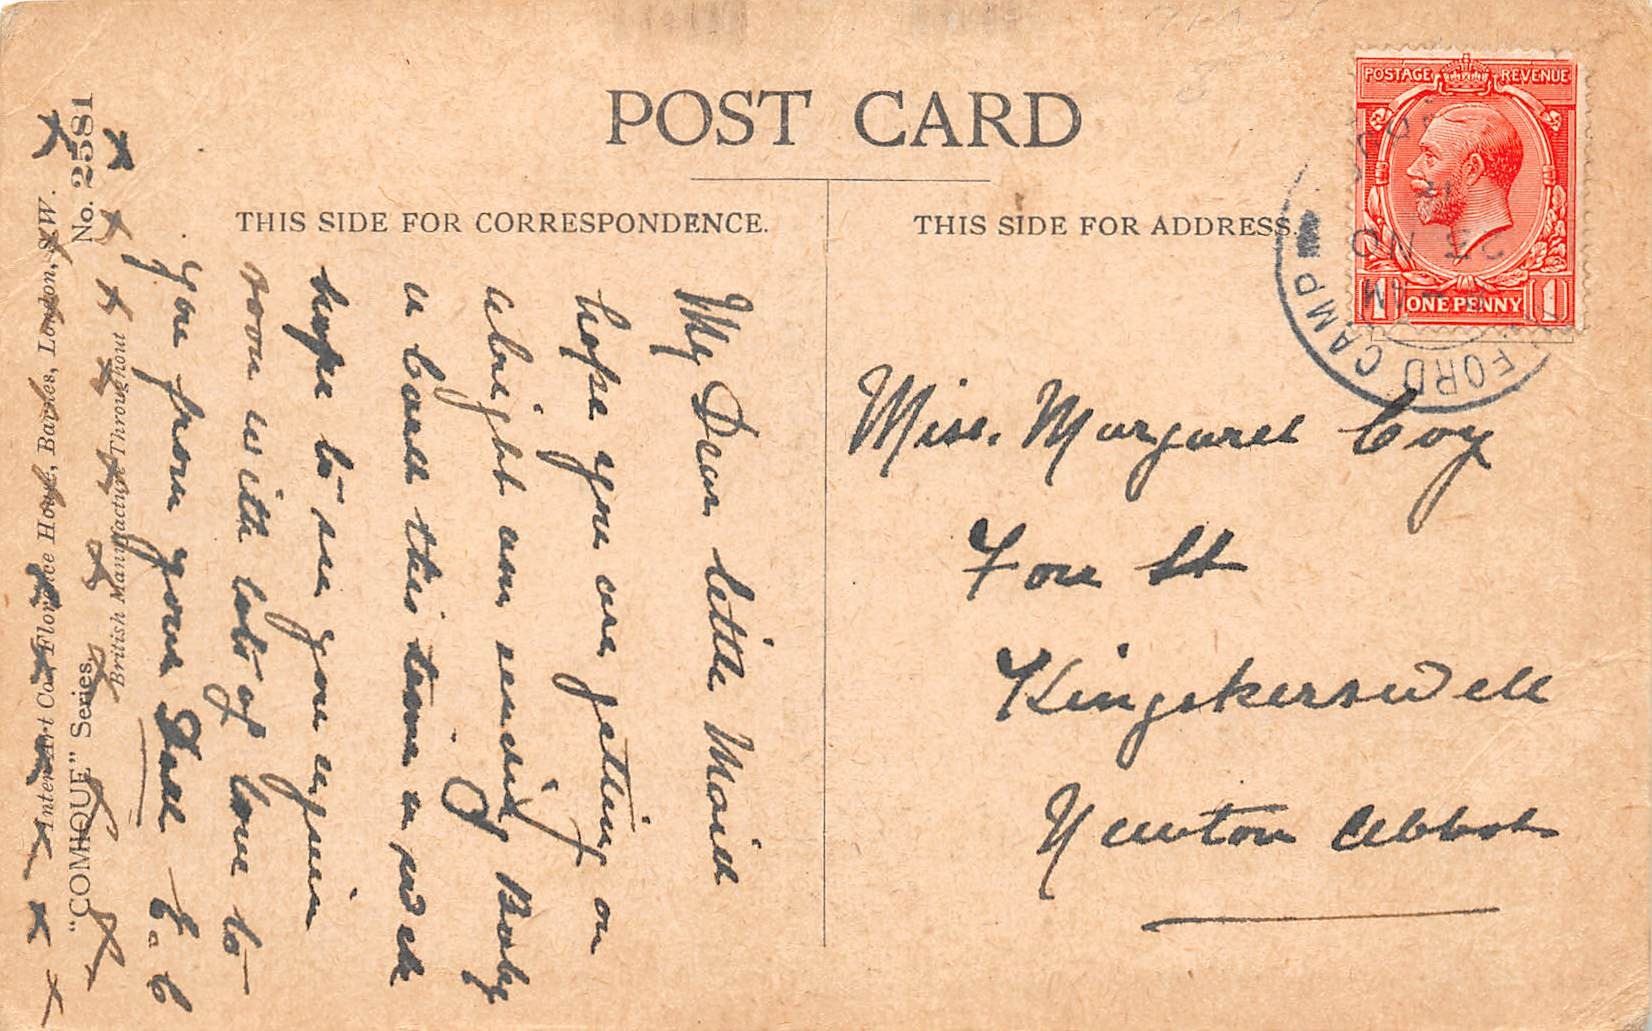 POST CARD
THIS SIDE FOR CORRESPONDENCE.
THIS SIDE FOR ADDRESS.
POSTAGE REVENUE
1 ONE PENNY 1
FORD CAMP
23 NO
My Dear little Maid
hope you are getting on
alright am sending Baby
a boat this time a week
hope to see you again
soon with lots of love to
you from your Dad C. C
Miss. Margaret Coy
Fore St
Kingskerswell
Newton Abbot
x x x x x x x x x
x x x x x x x x x
Inter-Art Co., Florence House, Barnes, London, S.W.
"COMIQUE" Series.
No. 2581
British Manufacture Throughout